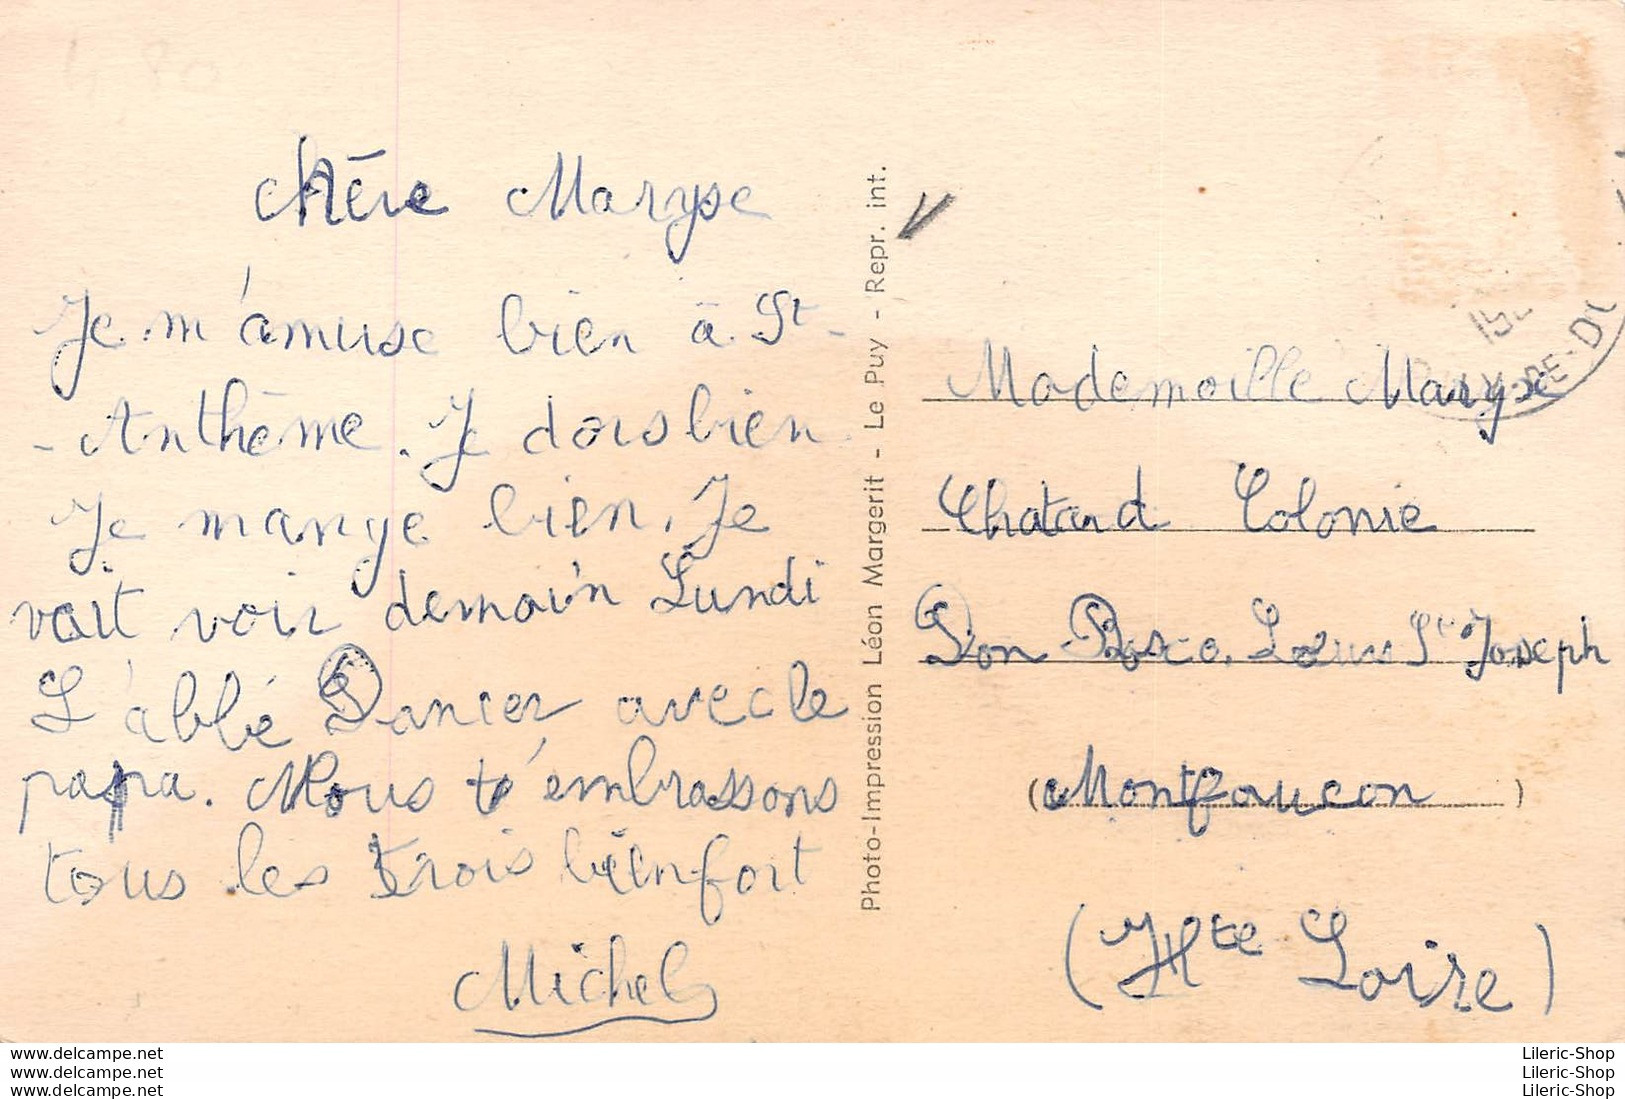 chère Maryse
Je m'amuse bien à St-
-Anthème. Je dors bien
Je mange bien. Je
vait voir demain Lundi
L'abbé Dancer avec le
papa. Nous t'embrassons
tous les trois bien fort
Michel
Photo-Impression Léon Margerit - Le Puy - Repr. int.
Mademoille Maryse
Chatard Colonie
Don Bosco. St Joseph
(Montfaucon)
(Hte Loire)
www.delcampe.net
www.delcampe.net
www.delcampe.net
Lileric-Shop
Lileric-Shop
Lileric-Shop